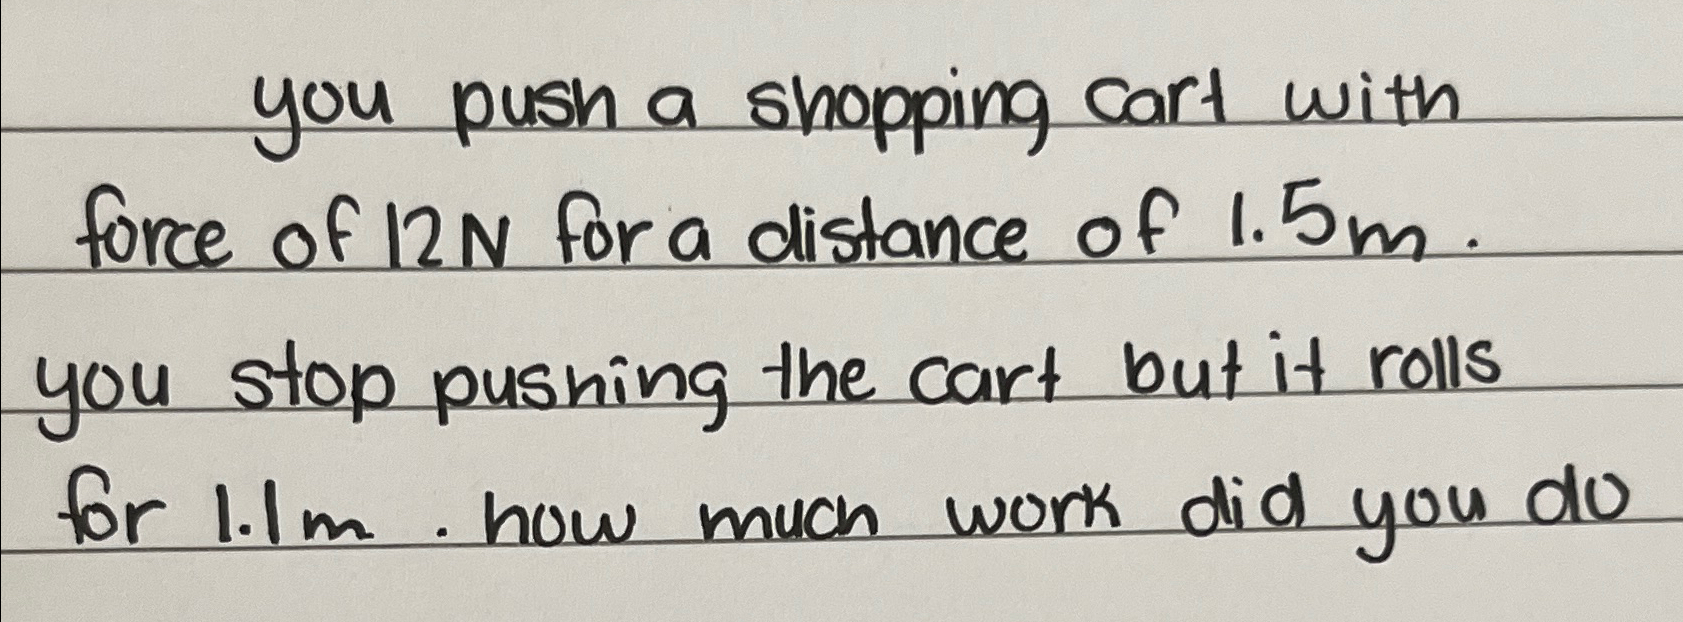 you push a shopping cart with
force of 12N for a distance of 1.5m.
you stop pushing the cart but it rolls
for 1.1m. how much work did you do